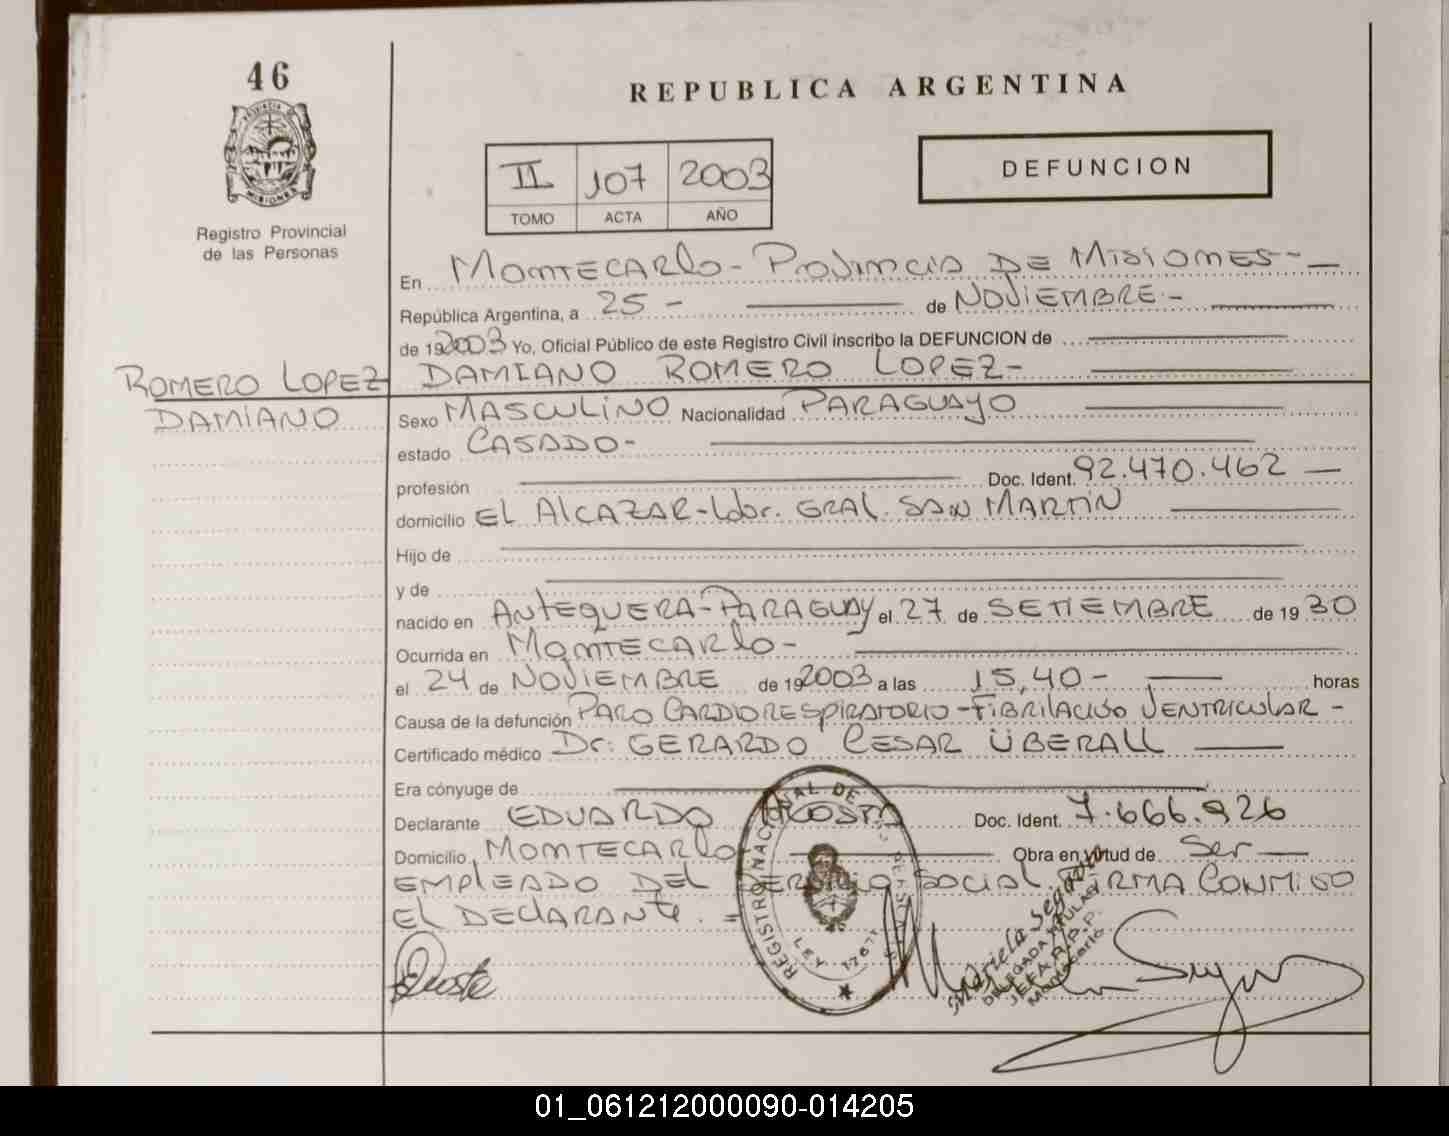 46
REPUBLICA ARGENTINA
PROVINCIA DE
MISIONES
II 107 2003
TOMO ACTA AÑO
DEFUNCION
Registro Provincial
de las Personas
En MONTECARLO - PROVINCIA DE MISIONES -
República Argentina, a 25 - de NOVIEMBRE -
de 192003 Yo, Oficial Público de este Registro Civil inscribo la DEFUNCION de
ROMERO LOPEZ
DAMIANO
DAMIANO ROMERO LOPEZ -
Sexo MASCULINO Nacionalidad PARAGUAYO
estado CASADO -
profesión Doc. Ident. 92.470.462
domicilio EL ALCAZAR - Lbdr. GRAL. SAN MARTIN
Hijo de
y de
nacido en ANTEQUERA - PARAGUAY el 27 de SETIEMBRE de 1930
Ocurrida en MONTECARLO -
el 24 de NOVIEMBRE de 192003 a las 15,40 - horas
Causa de la defunción PARO CARDIORESPIRATORIO - FIBRILACION VENTRICULAR -
Certificado médico Dr. GERARDO CESAR ÜBERALL
Era cónyuge de
Declarante EDUARDO ACOSTA Doc. Ident. 7.666.926
Domicilio MONTECARLO Obra en virtud de Ser
EMPLEADO DEL SERVICIO SOCIAL. FIRMA CONMIGO
EL DECLARANTE. =
REGISTRO NACIONAL DE LAS PERSONAS
LEY 17671
DELEGADA TITULAR
JEFA R.P.P.
Montecarlo
01_061212000090-014205